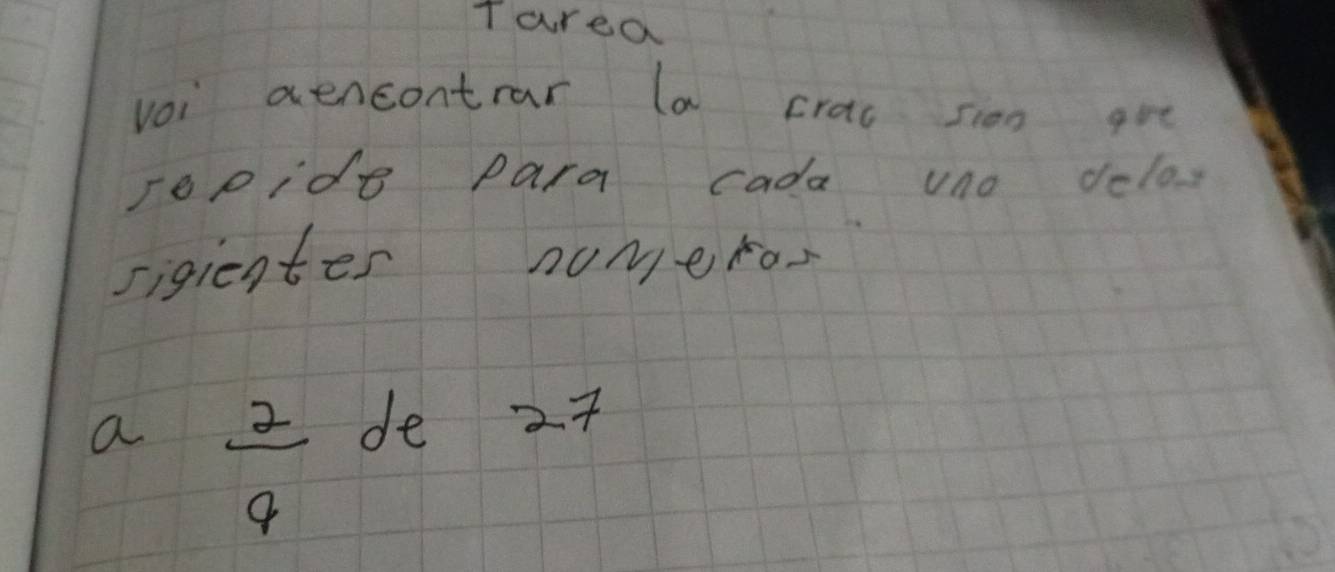 Tarea
voi aencontrar la fracsion que
sepide para cada uno delos
sigientes numeros
a 2/9 de 27